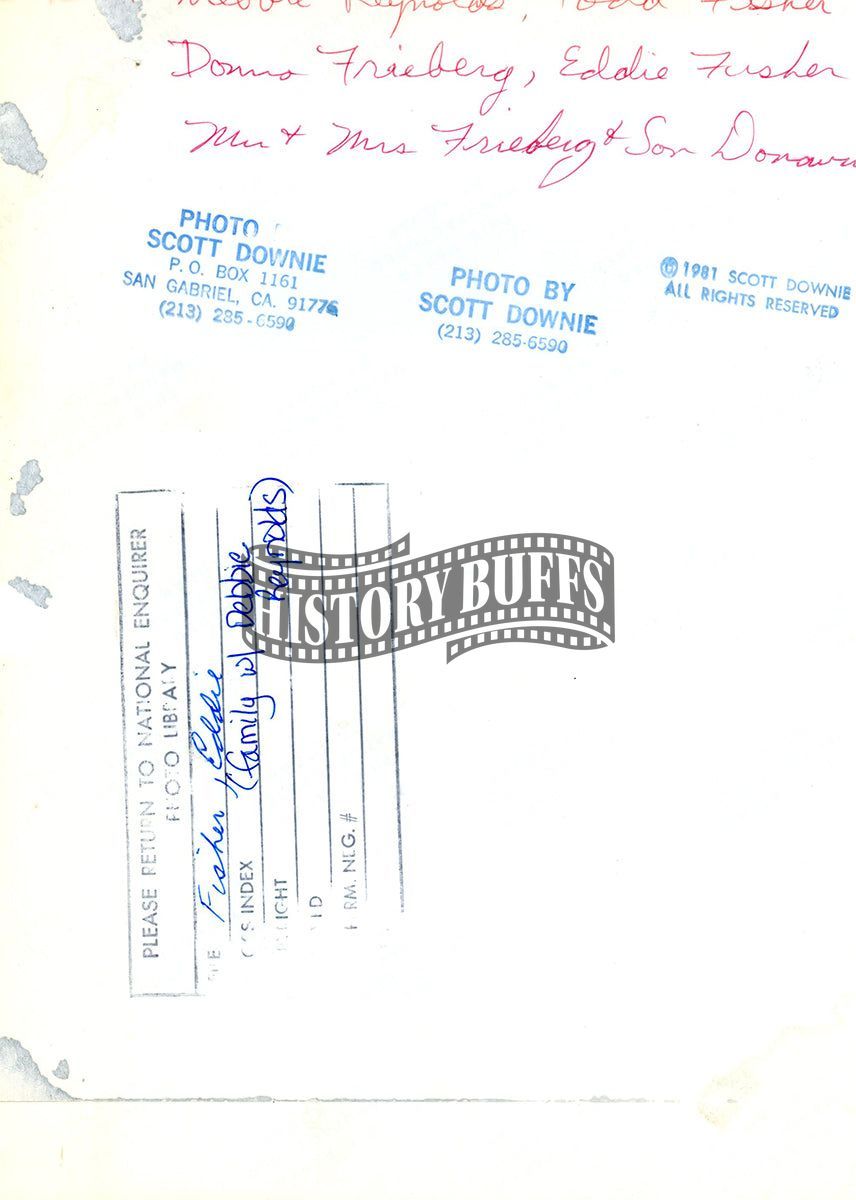 Debbie Reynolds, Todd Fisher
Donna Frieberg, Eddie Fisher
Mr + Mrs Frieberg + Son Donavan
PHOTO
SCOTT DOWNIE
P. O. BOX 1161
SAN GABRIEL, CA. 91776
(213) 285-6590
PHOTO BY
SCOTT DOWNIE
(213) 285-6590
© 1981 SCOTT DOWNIE
ALL RIGHTS RESERVED
PLEASE RETURN TO NATIONAL ENQUIRER
PHOTO LIBRARY
Fisher, Eddie
INDEX (family w/ Debbie
Reynolds)
NEG. #
HISTORY BUFFS